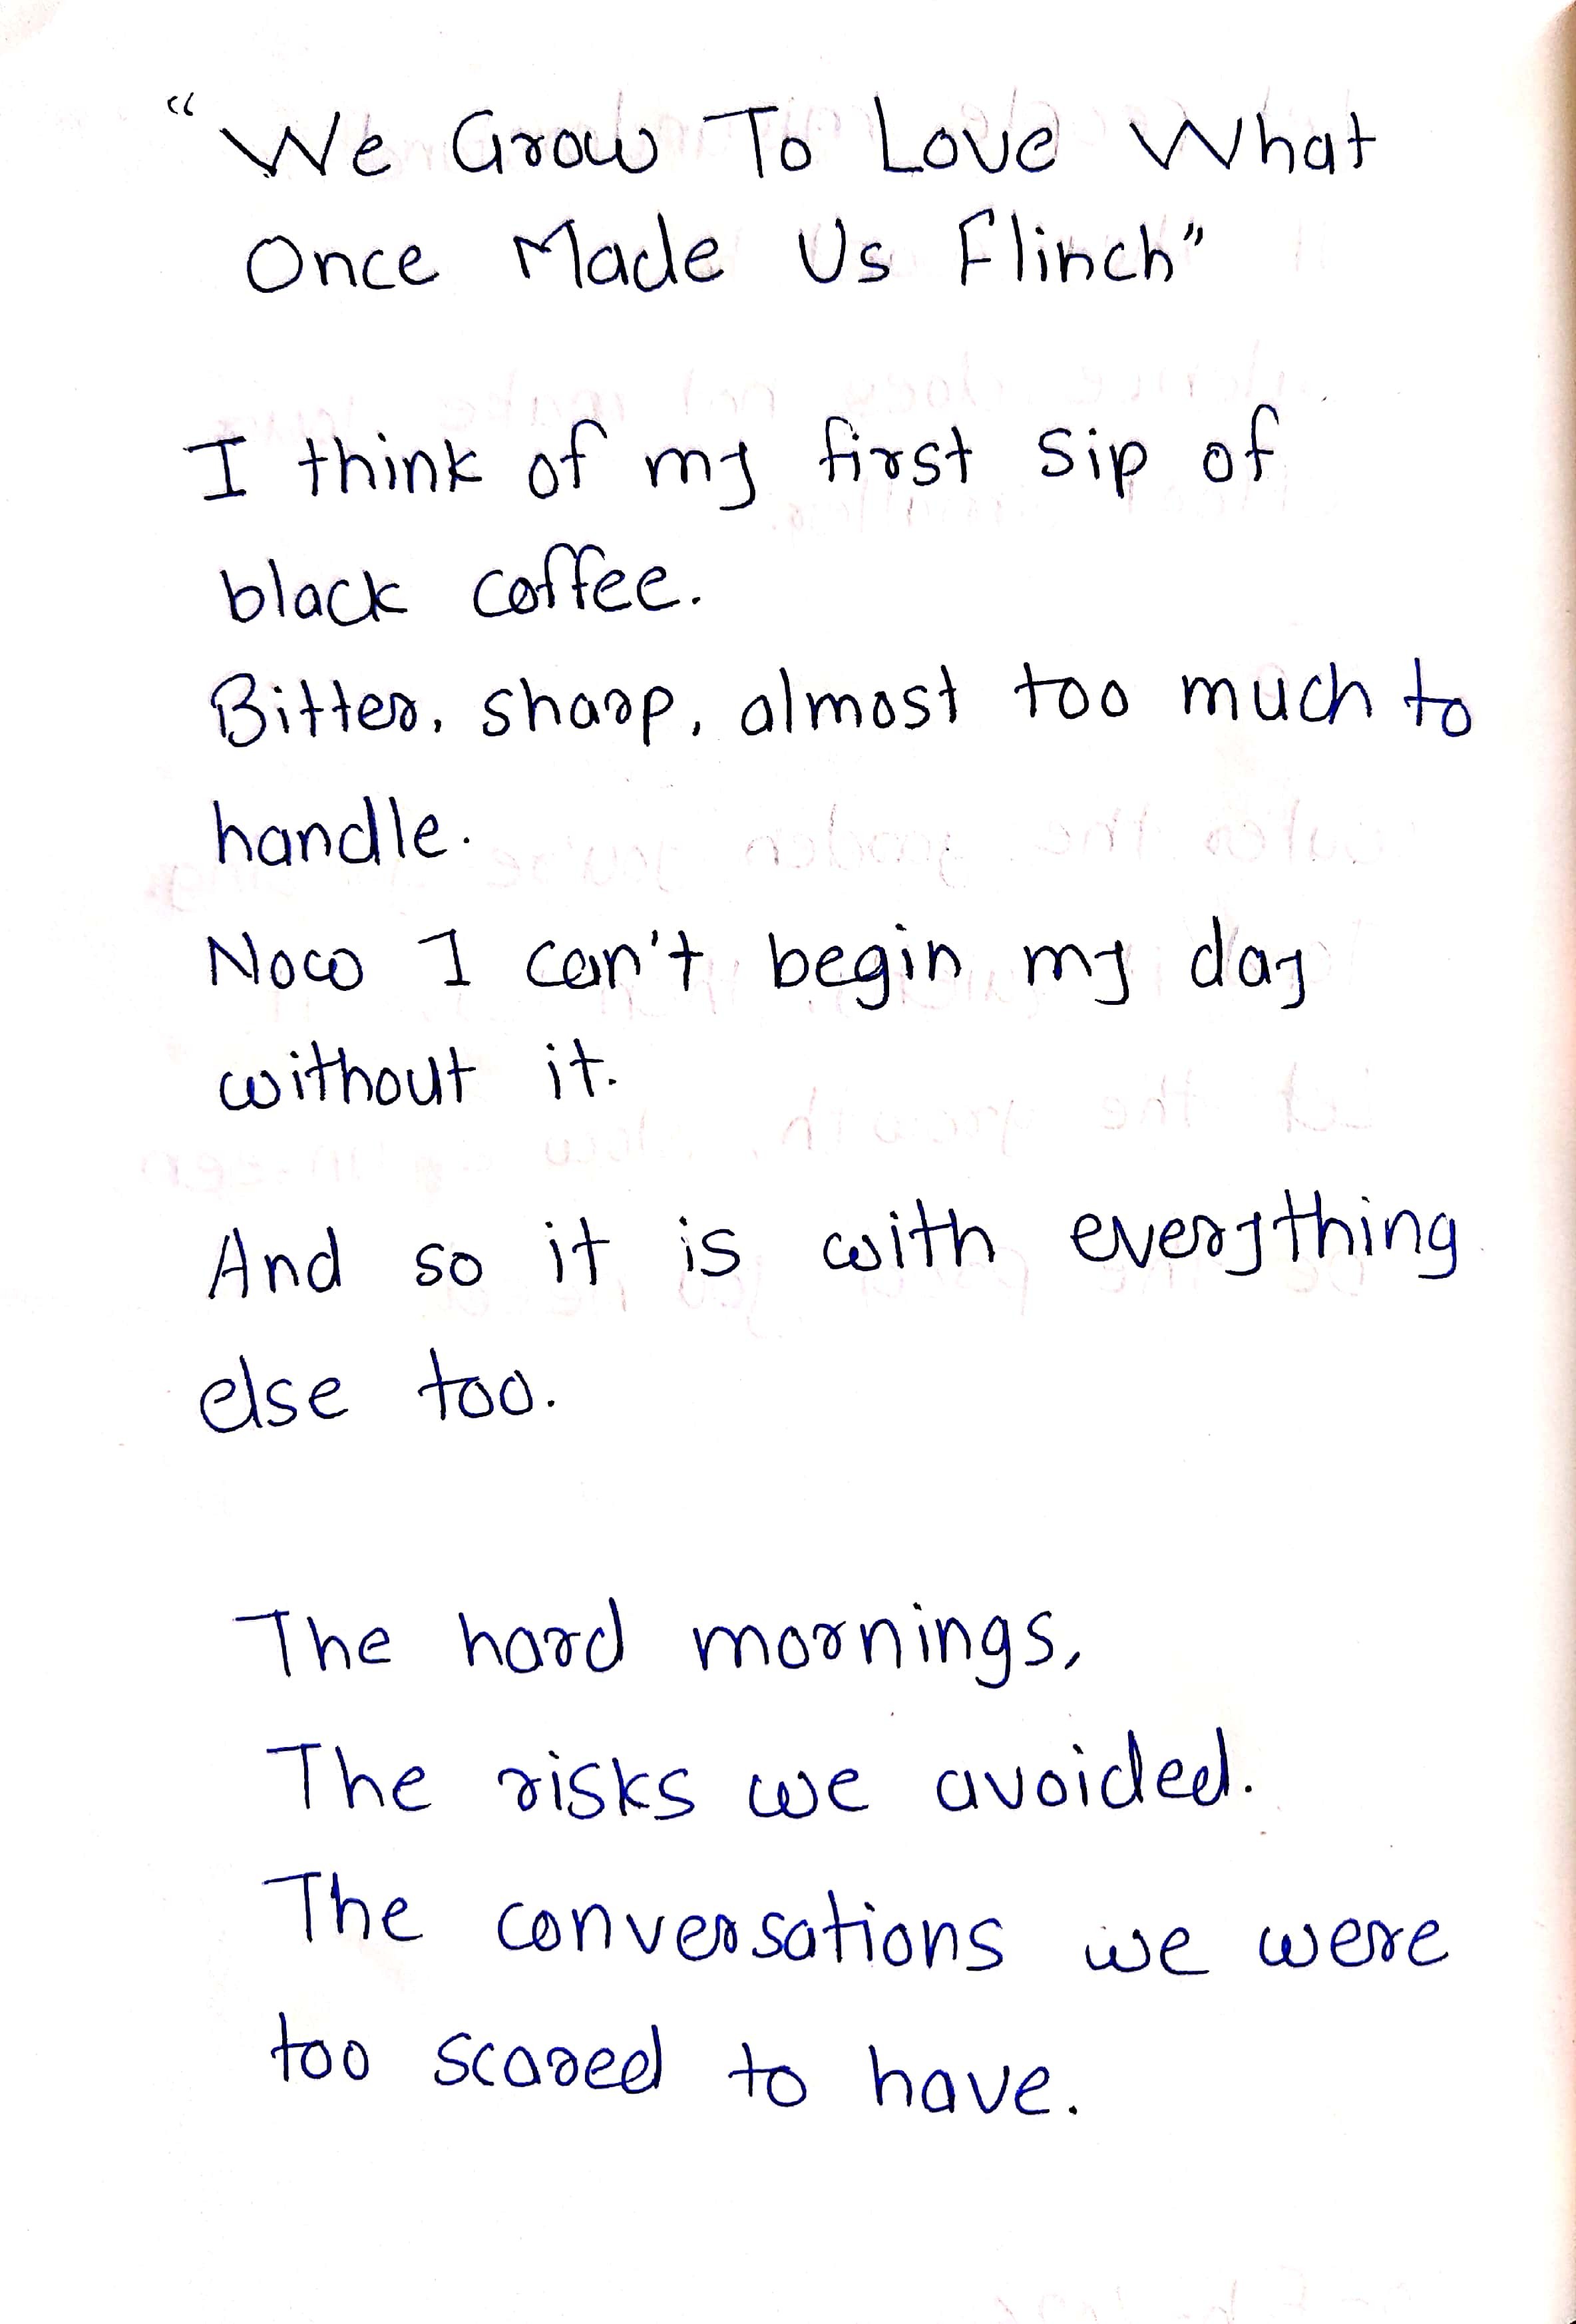 “We Grow To Love What
Once Made Us Flinch”
I think of my first sip of
black coffee.
Bitter, sharp, almost too much to
handle.
Now I can't begin my day
without it.
And so it is with everything
else too.
The hard mornings,
The risks we avoided.
The conversations we were
too scared to have.